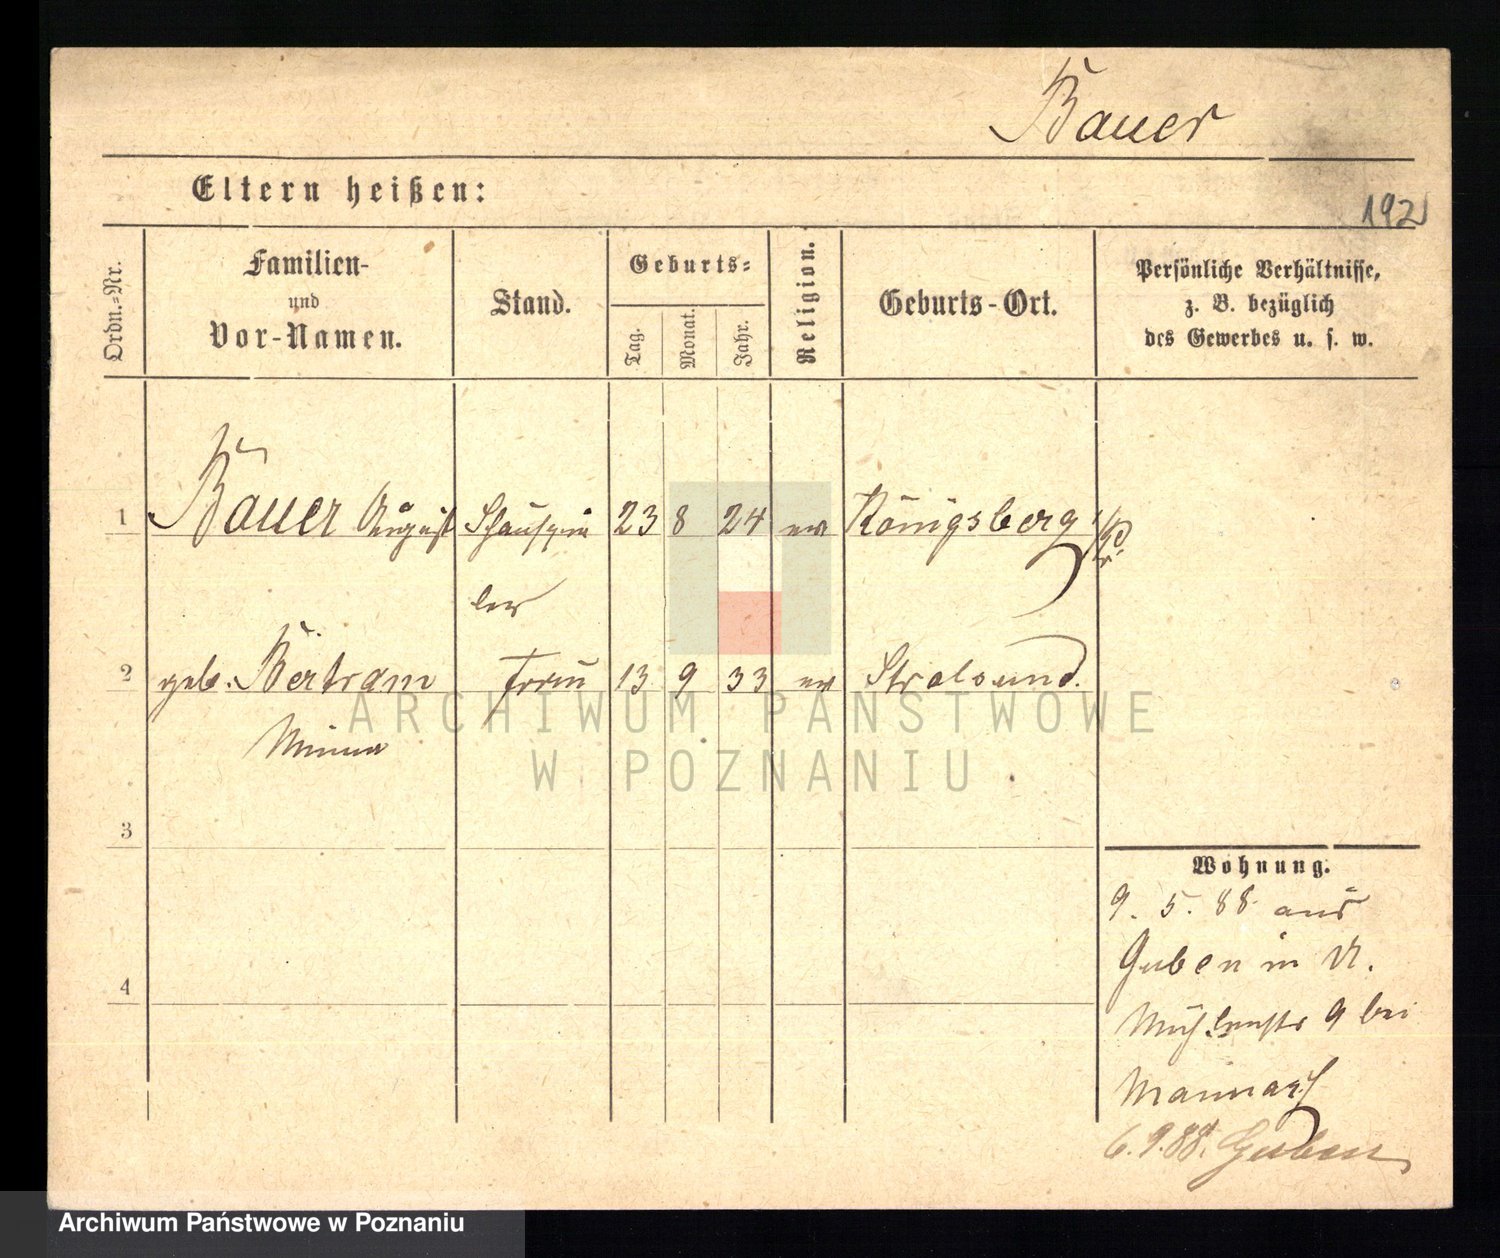 Bauer
Eltern heißen:
192
Ordn.-Nr.
Familien-
und
Vor-Namen.
Stand.
Geburts-
Tag.
Monat.
Jahr.
Religion.
Geburts-Ort.
Persönliche Verhältnisse,
z. B. bezüglich
des Gewerbes u. s. w.
1 Bauer August Schauspie 23 8 24 ev Königsberg i/Pr.
ler
2 geb. Bertram Frau 13 9 33 ev Stralsund.
Minna
3
4
Wohnung.
9. 5. 88 aus
Guben in
Mühlenstr 9 bei
6.9.88. Guben
ARCHIWUM PAŃSTWOWE
W POZNANIU
Archiwum Państwowe w Poznaniu